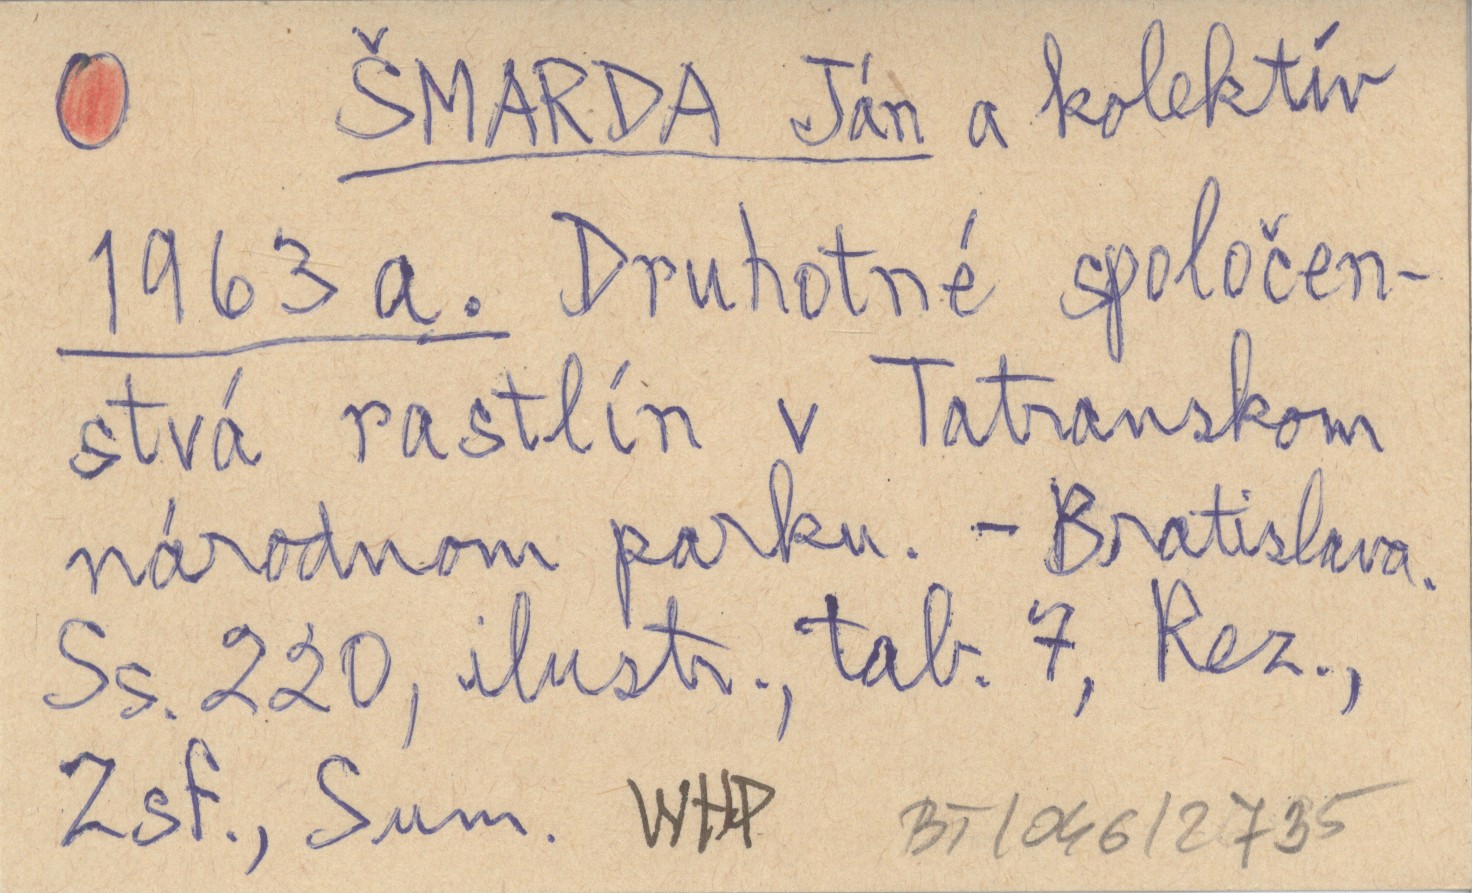 ŠMARDA Ján a kolektív
1963a. Druhotné spoločen-
stvá rastlín v Tatranskom
národnom parku. - Bratislava.
Ss. 220, ilustr., tab. 7, Rez.,
Zsf., Sum. WHP BT/046/2735